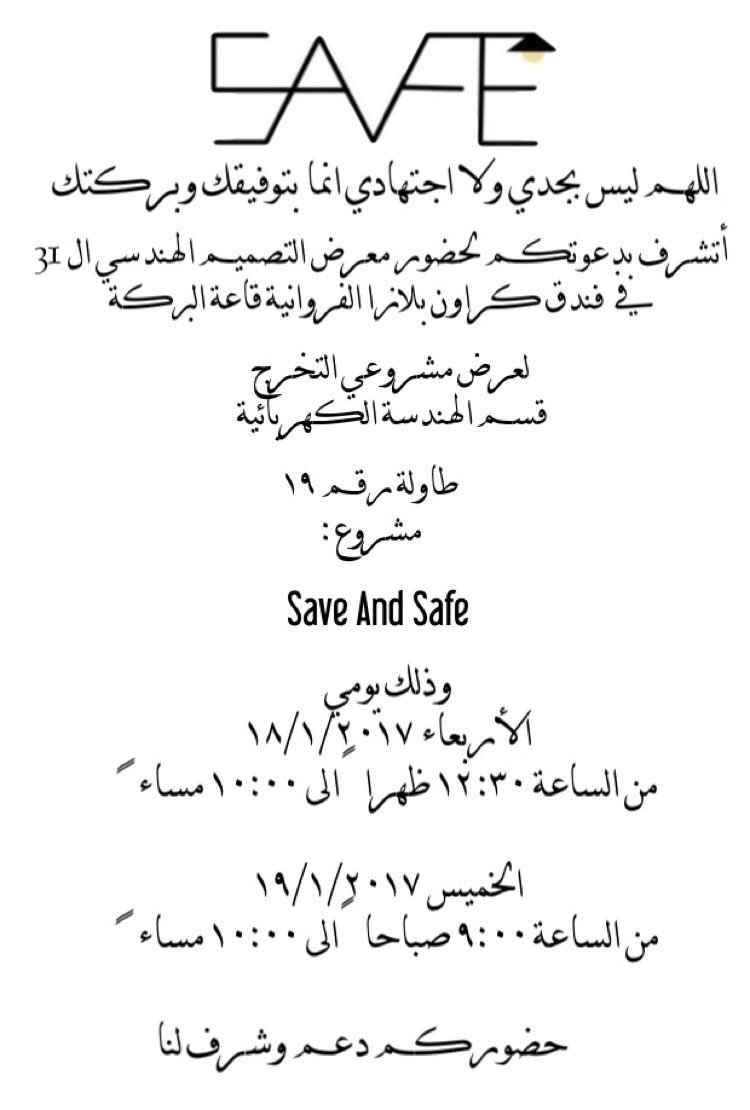 SAFE
اللهم ليس بجدي ولا اجتهادي انما بتوفيقك وبركتك
أتشرف بدعوتكم لحضور معرض التصميم الهندسي ال 31
في فندق كراون بلازا الفروانية قاعة البركة
لعرض مشروعي التخرج
قسم الهندسة الكهربائية
طاولة رقم ١٩
مشروع :
Save And Safe
وذلك يومي
الأربعاء ١٨/١/٢٠١٧
من الساعة ١٢:٣٠ ظهرا الى ١٠:٠٠ مساء ً
الخميس ١٩/١/٢٠١٧
من الساعة ٩:٠٠ صباحا الى ١٠:٠٠ مساء ً
حضوركم دعم وشرف لنا